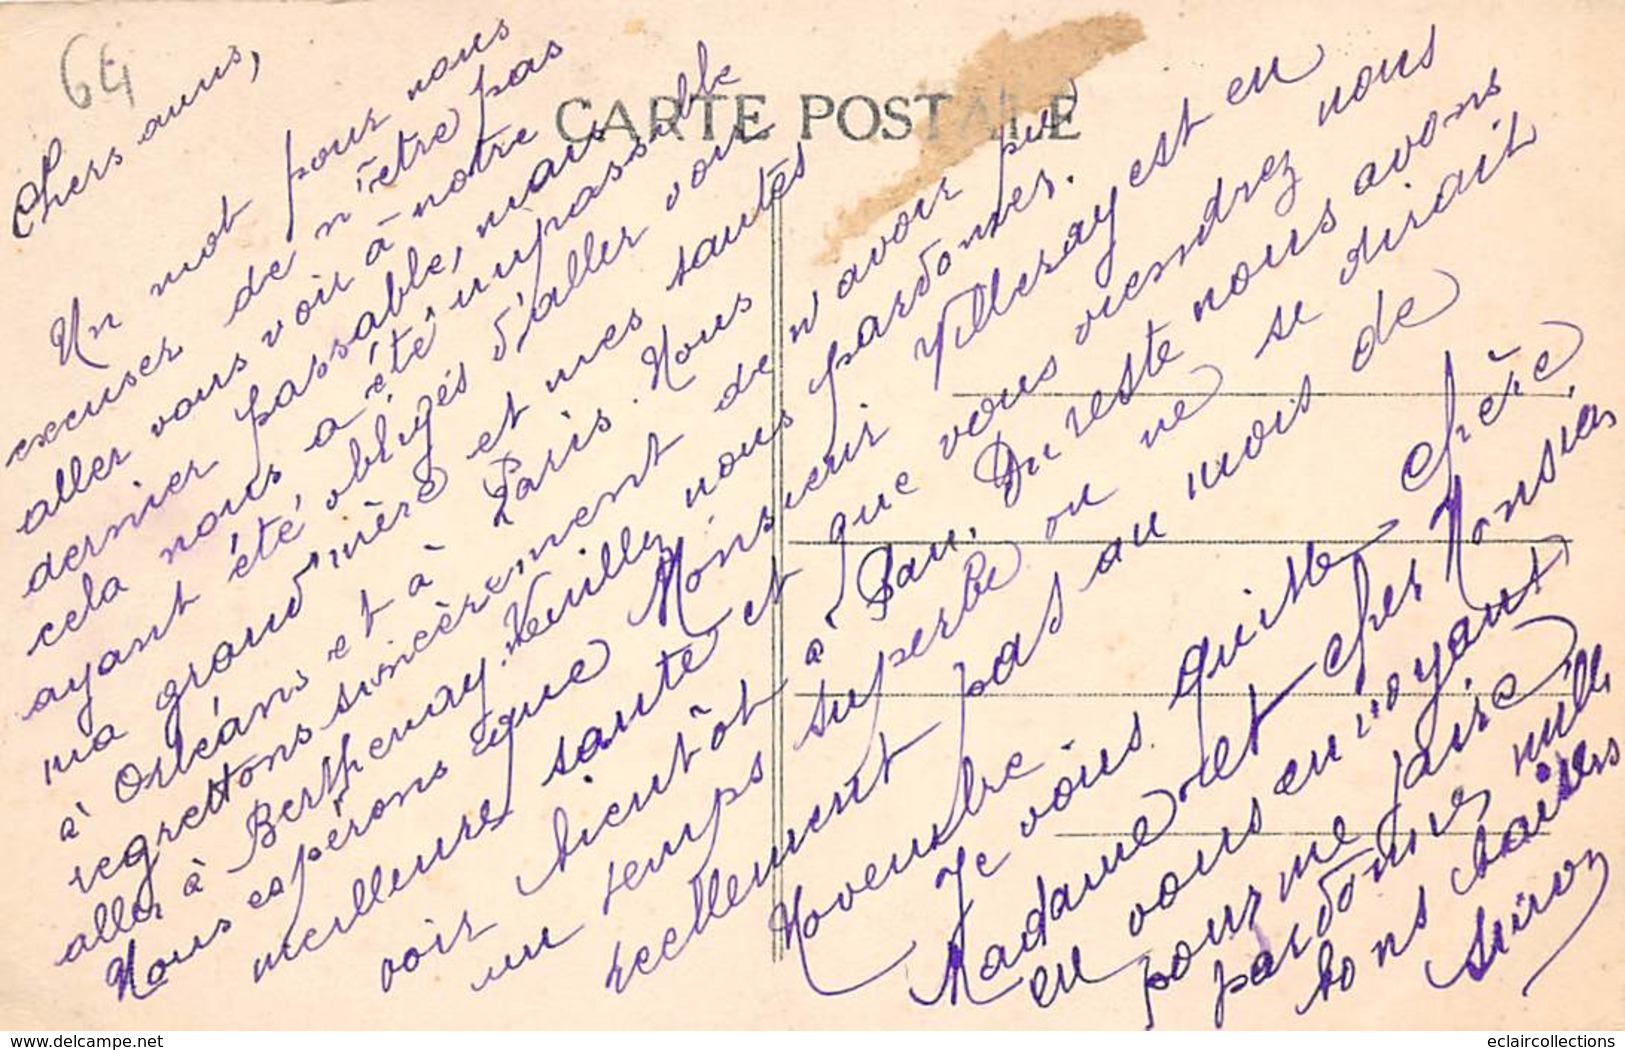 64
CARTE POSTALE
Chers amis,
Un mot pour nous
excuser de n'être pas
aller vous voir à notre
dernier passable, mais
cela nous a été impassible
ayant été obligés d'aller voir
ma grand'mère et mes tantes
à Orléans et à Paris. Nous
regrettons sincèrement de n'avoir pu
aller à Berthenay. Veuillez nous pardonner.
Nous espérons que Monsieur Villeray est en
meilleure santé et que vous viendrez nous
voir bientôt à Pau. Du reste nous avons
un temps superbe on ne se dirait
reellement pas au mois de
Novembre
Je vous quitte chère
Madame et cher Monsieur
en vous envoyant,
pour me faire
pardonner mille
bons baisers
www.delcampe.net
eclaircollections